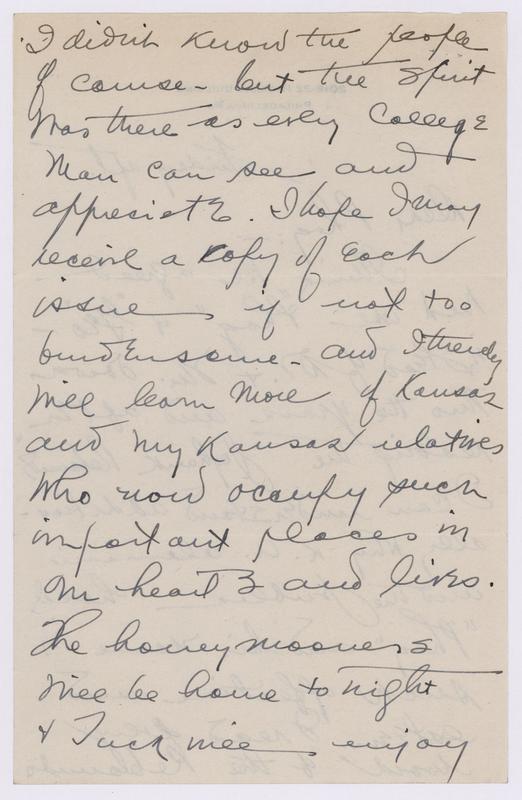 I didn't know the people
of course - but the spirit
was there as every College
man can see and
appreciate. I hope I may
receive a copy of each
issue if not too
burdensome - and I thereby
will learn more of Kansas
and my Kansas relatives
who now occupy such
important places in
our hearts and lives.
The honeymooners
will be home to night
& Tuck will enjoy